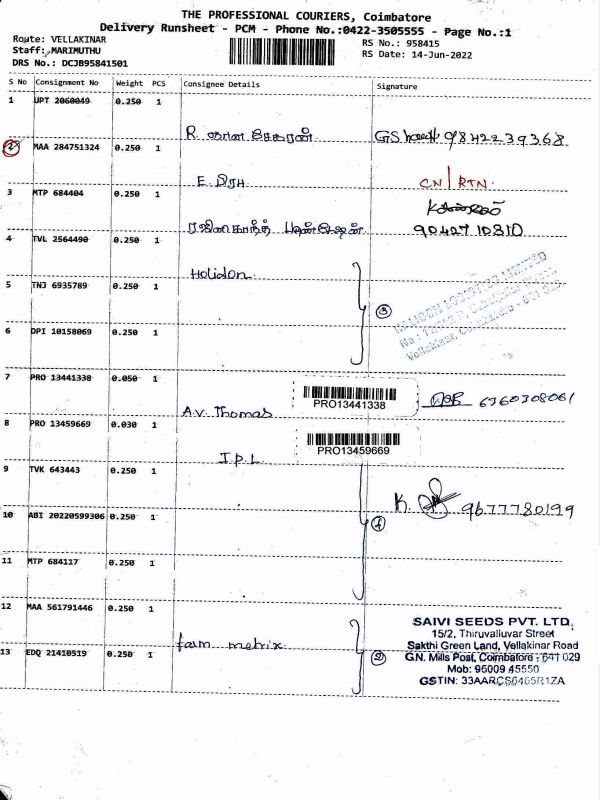 THE PROFESSIONAL COURIERS, Coimbatore
Delivery Runsheet - PCM - Phone No.:0422-3505555 - Page No.:1
Route: VELLAKINAR
Staff: MARIMUTHU
DRS No.: DCJB95841501
RS No.: 958415
RS Date: 14-Jun-2022
S No Consignment No Weight PCS Consignee Details Signature
1 UPT 2060049 0.250 1
R. ஞான சேகரன் 9842239368
2 MAA 284751324 0.250 1
E பிரபு CN/RTN.
3 MTP 684404 0.250 1
ரஜினிகாந்த் 9042710810
4 TVL 2564490 0.250 1
Holidon
5 TNJ 6935789 0.250 1
3
Vellakinar, Coimbatore - 641 029
6 DPI 10158069 0.250 1
7 PRO 13441338 0.050 1
PRO13441338
A.V. Thomas 6360308061
8 PRO 13459669 0.030 1
PRO13459669
I.P.L
9 TVK 643443 0.250 1
K. 9677780199
10 ABI 20220599306 0.250 1
4
11 MTP 684117 0.250 1
12 MAA 561791446 0.250 1
farm metrix
13 EDQ 21410519 0.250 1
2
SAIVI SEEDS PVT. LTD,
15/2, Thiruvalluvar Street
Sakthi Green Land, Vellakinar Road
G.N. Mills Post, Coimbatore - 641 029
Mob: 95009 45550
GSTIN: 33AARCS6465R1ZA